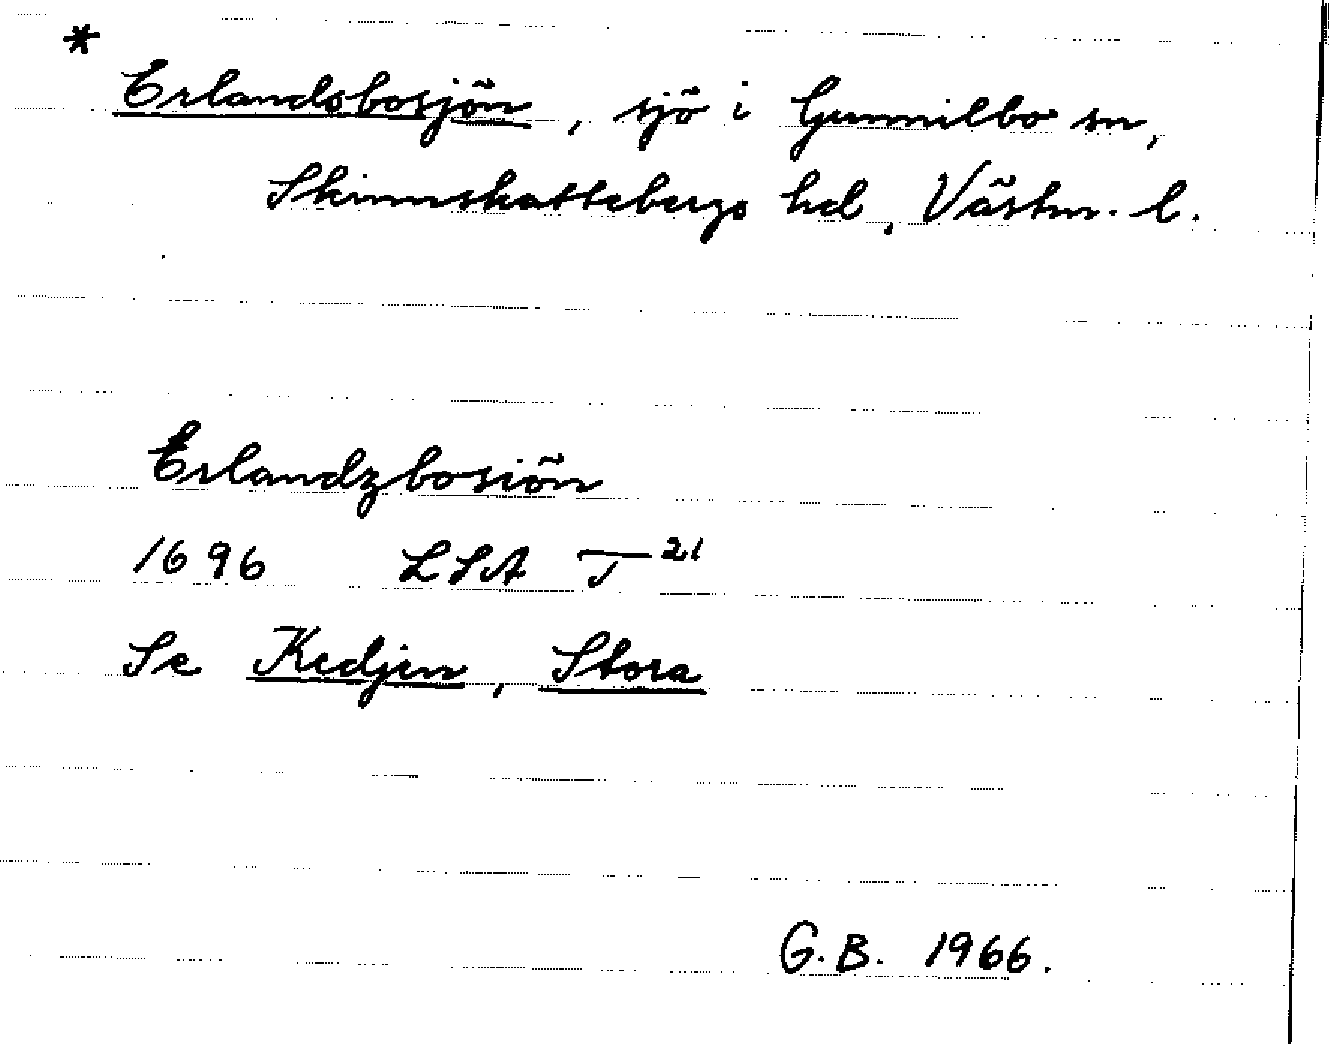 *
Erlandsbosjön, sjö i Gunnilbo sn,
Skinnskattebergs hd, Västm. l.
Erlandzbosiön
1696 LSA T 21
Se Kedjen, Stora
G.B. 1966.